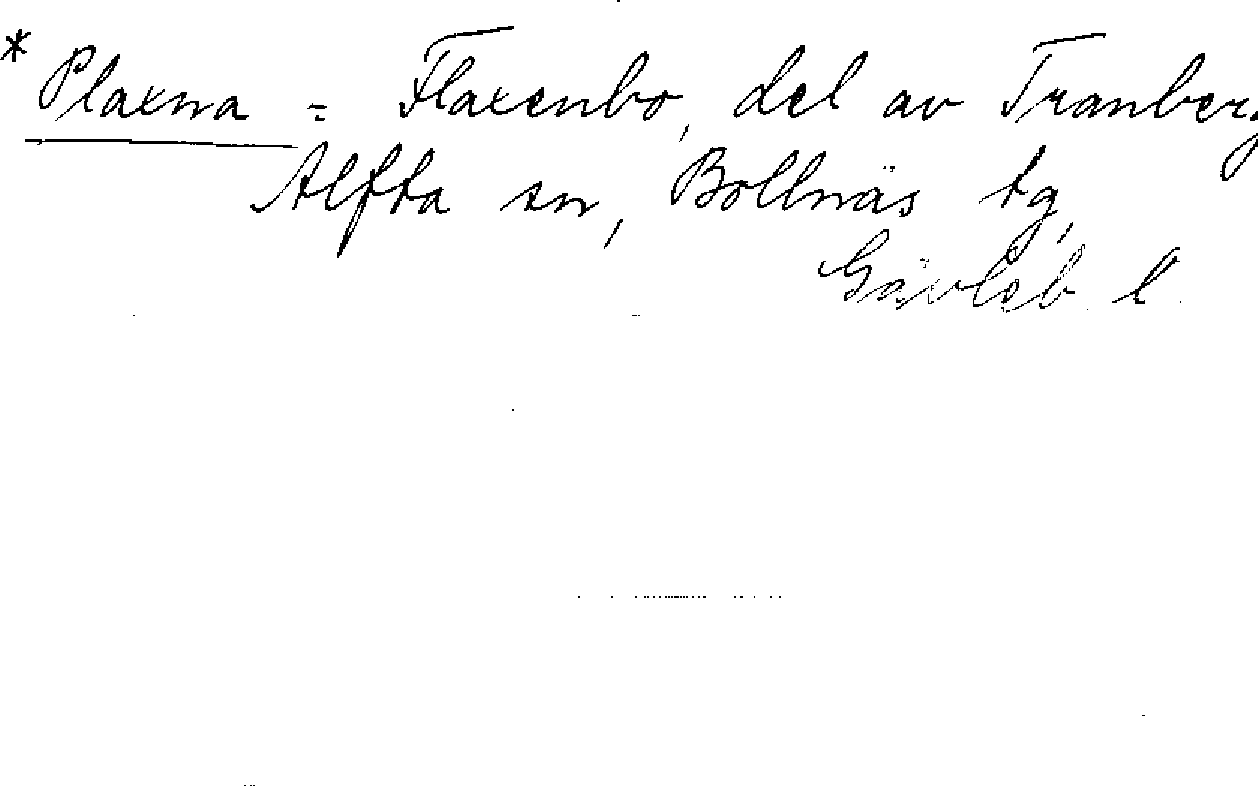 * Plaxna = Flaxenbo, del av Tranberg
Alfta sn, Bollnäs tg,
Gävleb. l.